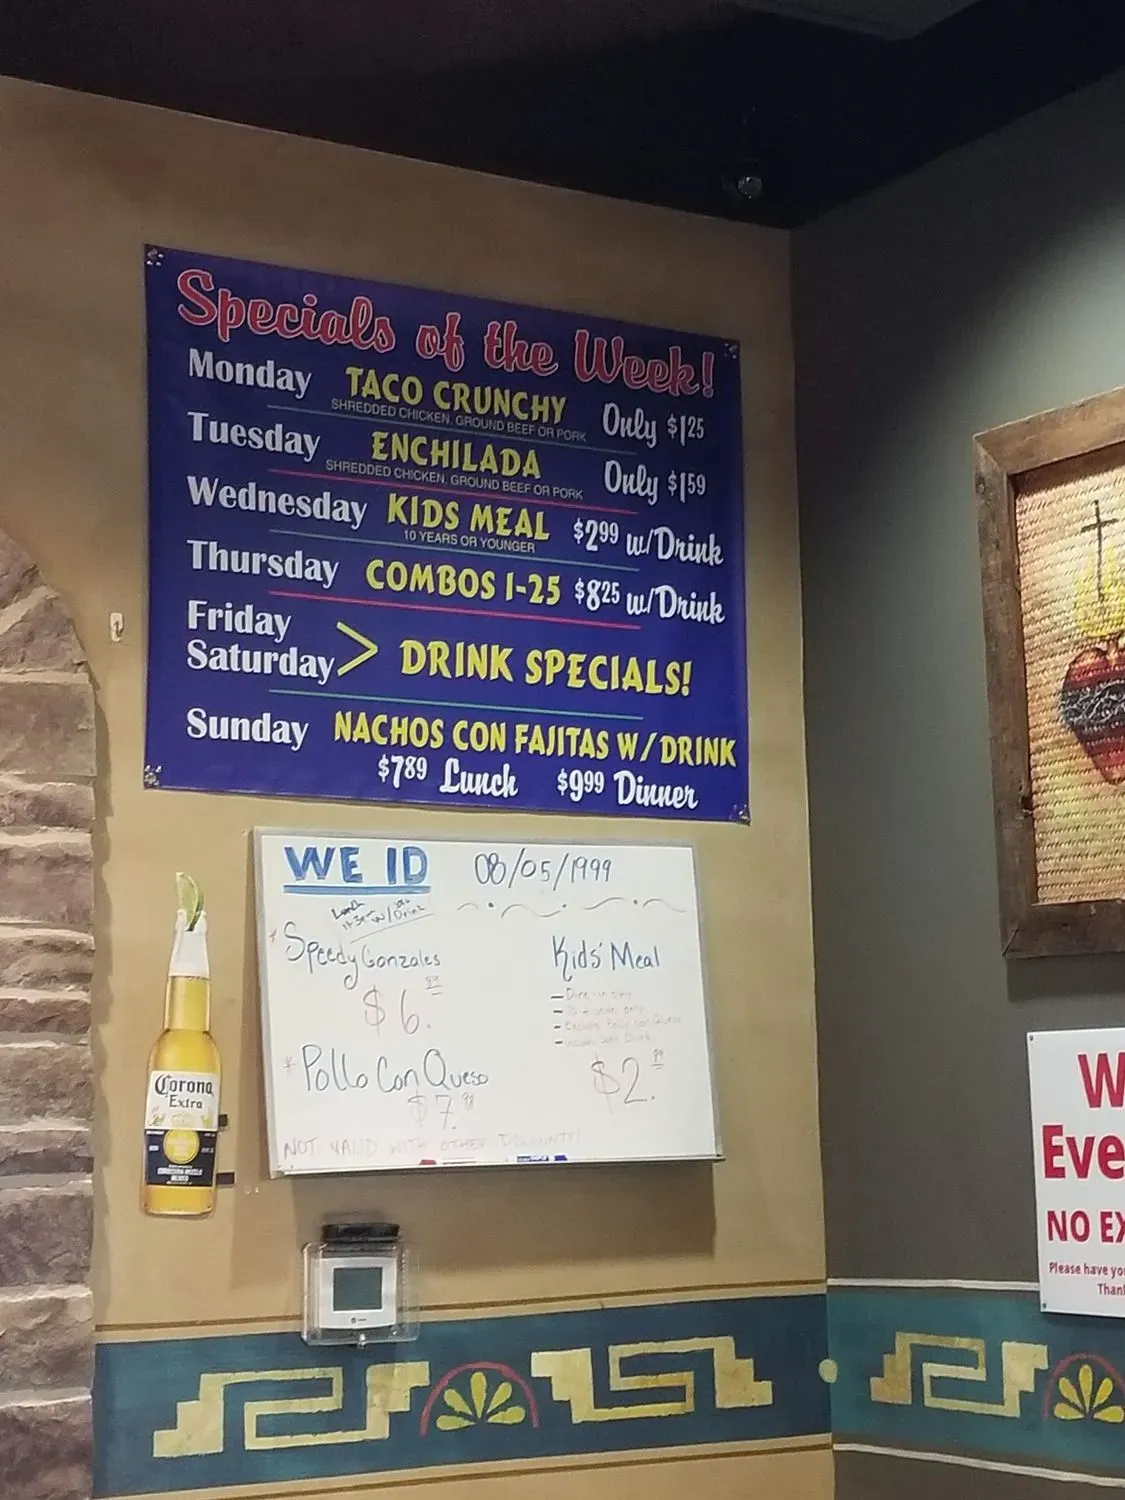 Specials of the Week!
Monday TACO CRUNCHY Only $1.25
SHREDDED CHICKEN, GROUND BEEF OR PORK
Tuesday ENCHILADA Only $1.59
SHREDDED CHICKEN, GROUND BEEF OR PORK
Wednesday KIDS MEAL $2.99 w/Drink
10 YEARS OR YOUNGER
Thursday COMBOS 1-25 $8.25 w/Drink
Friday
Saturday > DRINK SPECIALS!
Sunday NACHOS CON FAJITAS W/DRINK
$7.89 Lunch $9.99 Dinner
WE ID 08/05/1999
Lunch
w/Drink
Speedy Gonzales
$6.
Pollo Con Queso
$7.
Kids' Meal
- Dine-in only
$2.99
NOT VALID WITH OTHER DISCOUNTS!
Corona
Extra
W
Eve
NO EX
Please have yo
Than